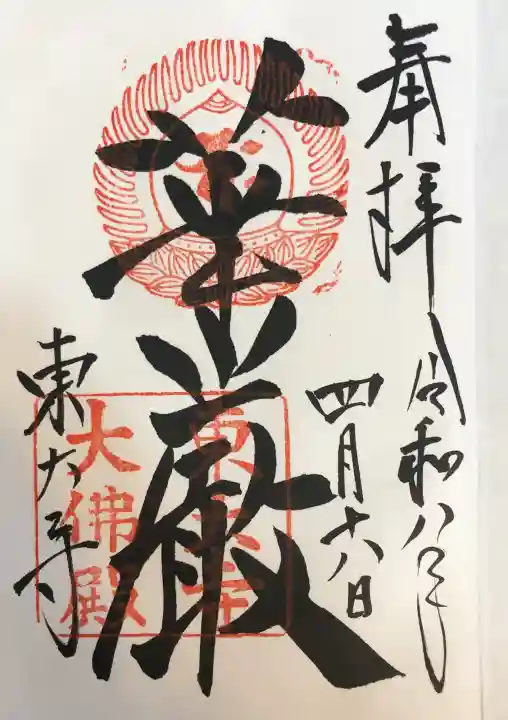 奉拝 令和八年
四月十八日
華厳
東大寺
東大寺
大佛殿